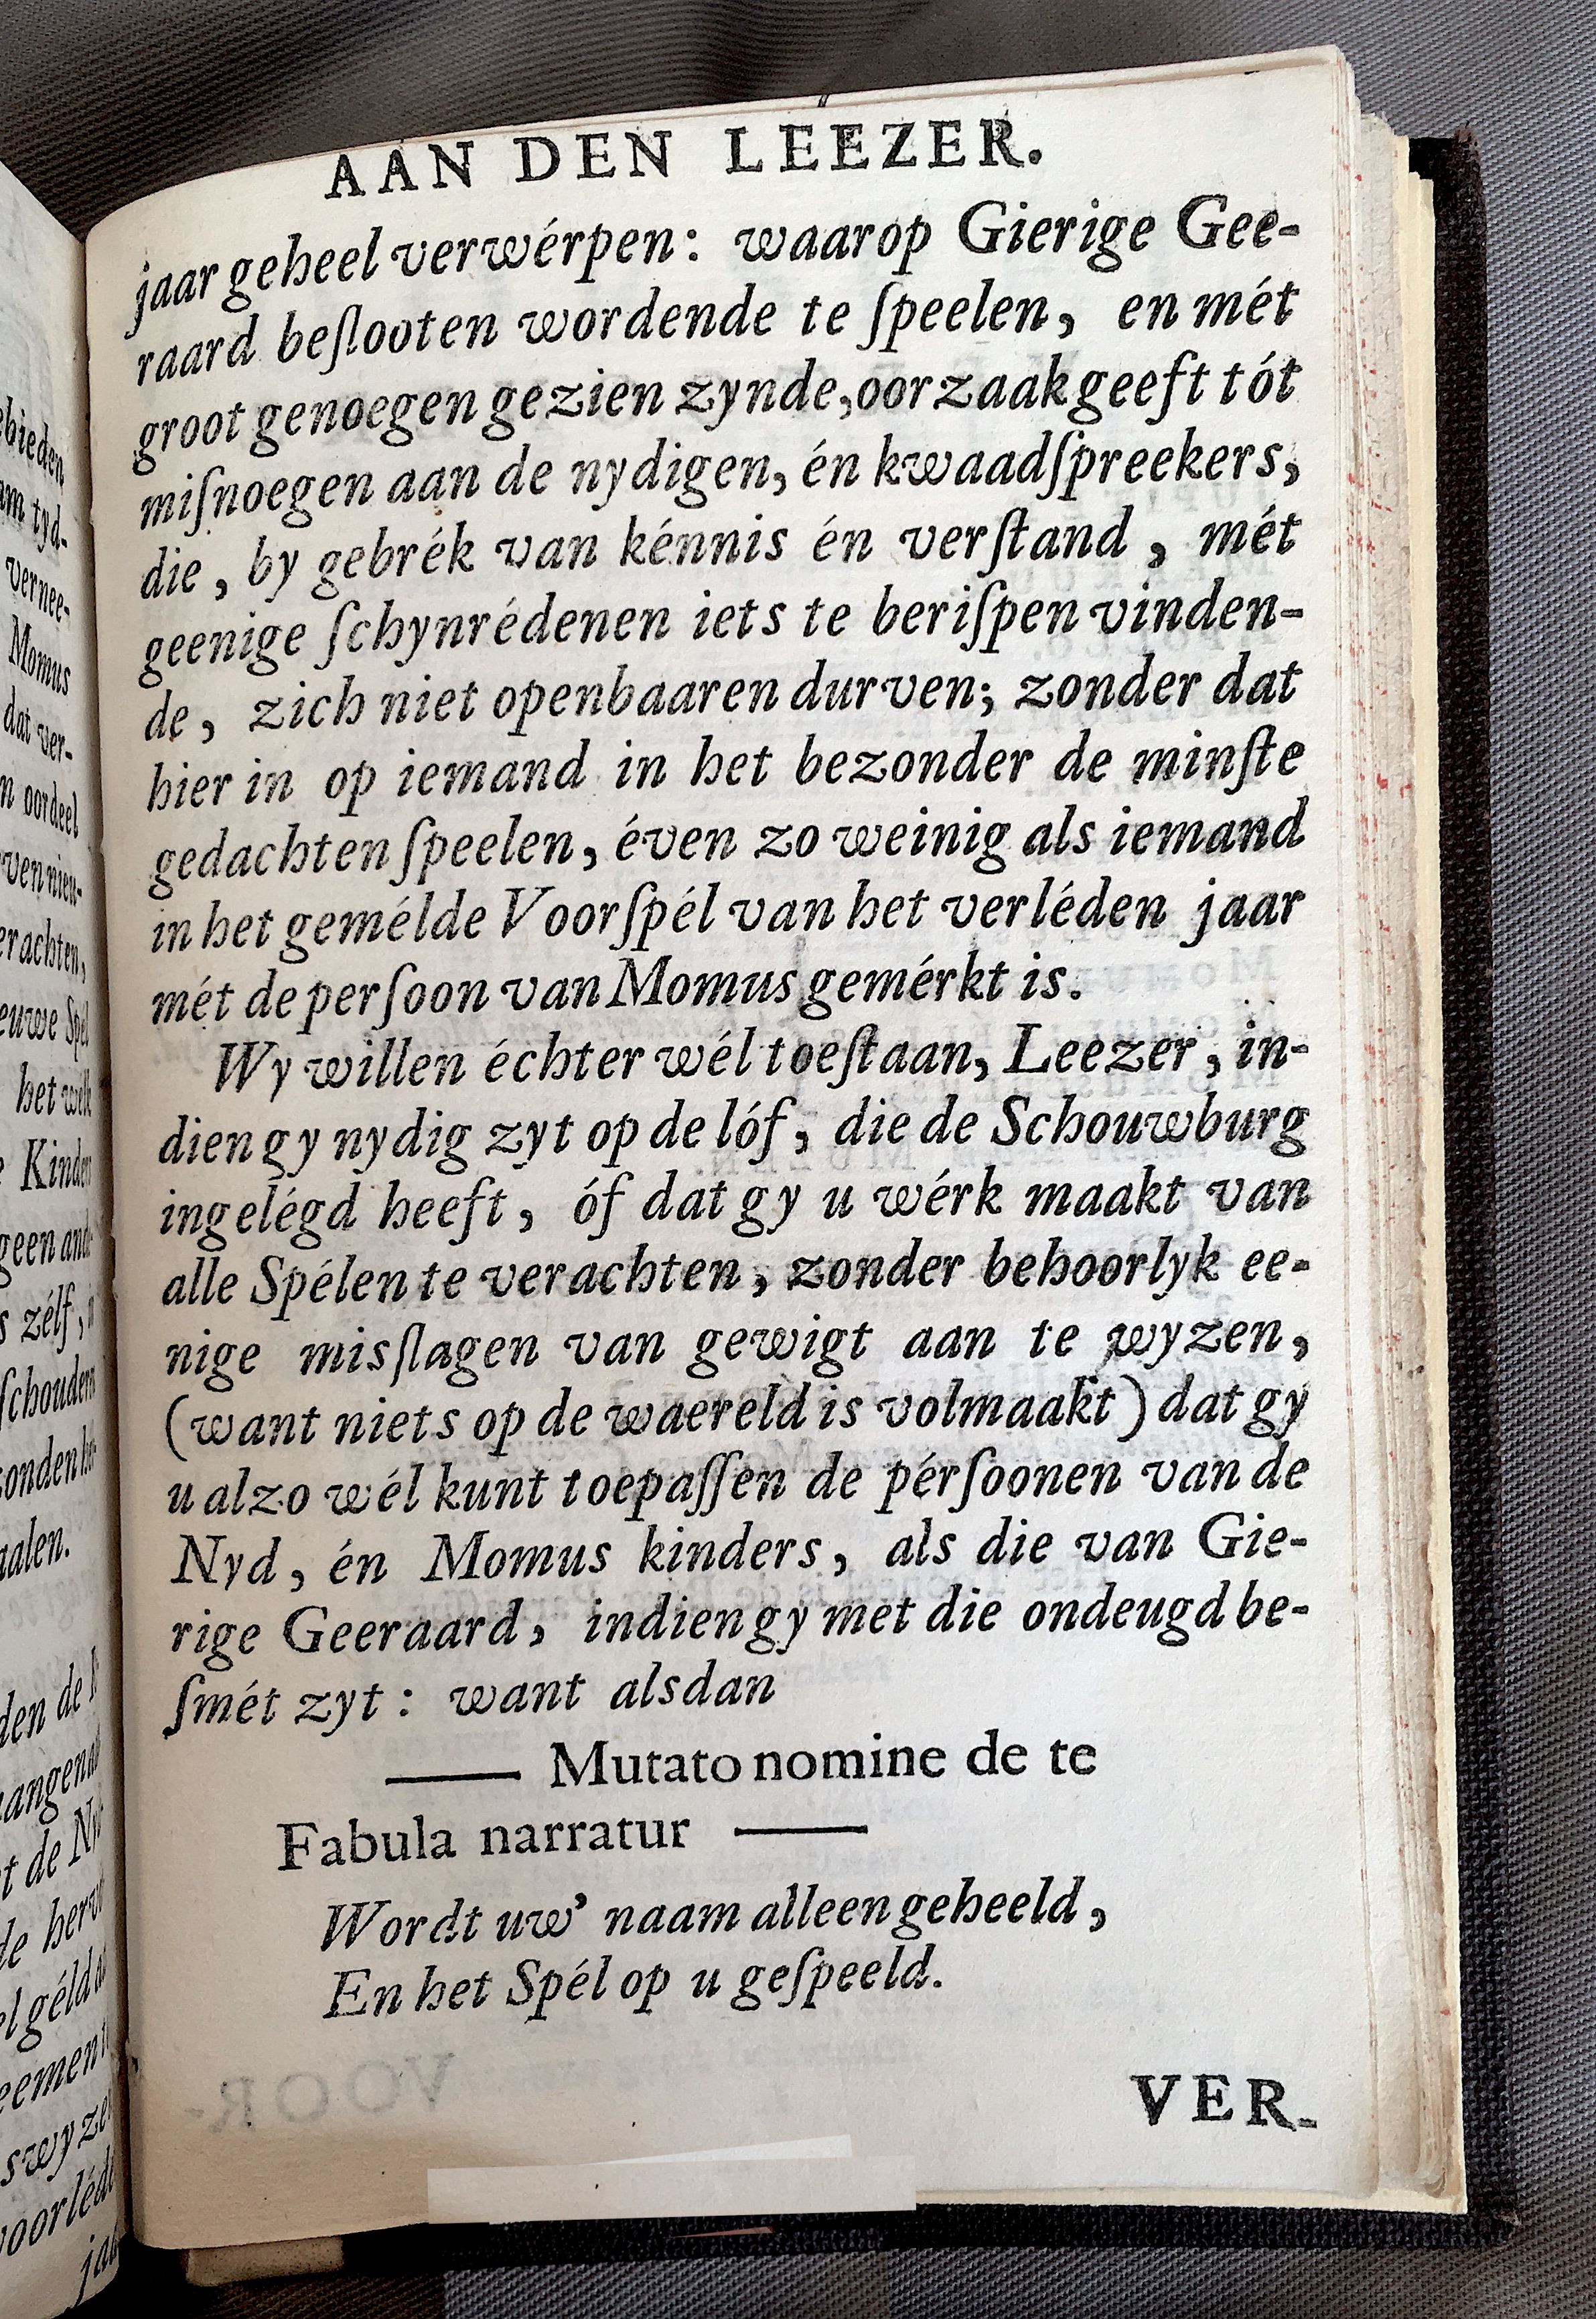 AAN DEN LEEZER.
jaar geheel verwérpen: waarop Gierige Gee-
raard beſlooten wordende te ſpeelen, en mét
groot genoegen gezien zynde, oorzaak geeft tót
miſnoegen aan de nydigen, én kwaadſpreekers,
die, by gebrék van kénnis én verſtand, mét
geenige ſchynrédenen iets te beriſpen vinden-
de, zich niet openbaaren durven; zonder dat
hier in op iemand in het bezonder de minſte
gedachten ſpeelen, éven zo weinig als iemand
in het gemélde Voorſpél van het verléden jaar
mét de perſoon van Momus gemérkt is.
Wy willen échter wél toeſtaan, Leezer, in-
dien gy nydig zyt op de lóf, die de Schouwburg
ingelégd heeft, óf dat gy u wérk maakt van
alle Spélen te verachten, zonder behoorlyk ee-
nige misſlagen van gewigt aan te wyzen,
(want niets op de waereld is volmaakt) dat gy
u alzo wél kunt toepaſſen de pérſoonen van de
Nyd, én Momus kinders, als die van Gie-
rige Geeraard, indien gy met die ondeugd be-
ſmét zyt: want alsdan
—— Mutato nomine de te
Fabula narratur ——
Wordt uw' naam alleen geheeld,
En het Spél op u geſpeeld.
VER-
ebieden
am tyd-
vernee-
Momus
dat ver-
n oordeel
ven nieu-
erachten,
euwe Spél
het welk
Kinder
geen and
s zélf,
ſchoudern
zonden
aalen.
den de
angen
t de Ny
de herv
el géld
eement
swyze
voorléd
jaa